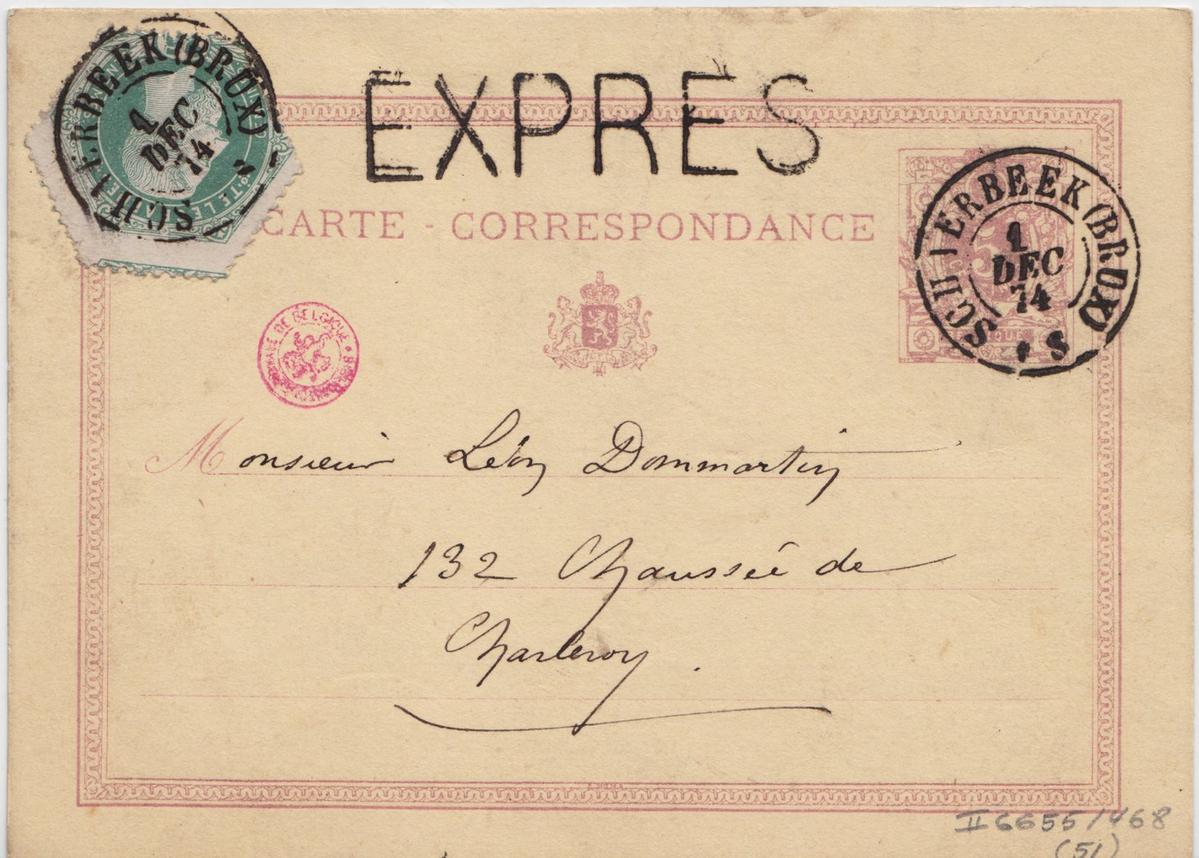 SCHAERBEEK (BRUX)
1
DEC
74
EXPRES
CARTE - CORRESPONDANCE
SCHAERBEEK (BRUX)
1
DEC
74
S
DE BELGIQUE
Monsieur Léon Dommartin
132 Chaussée de
Charleroy.
II 6655/468
(51)